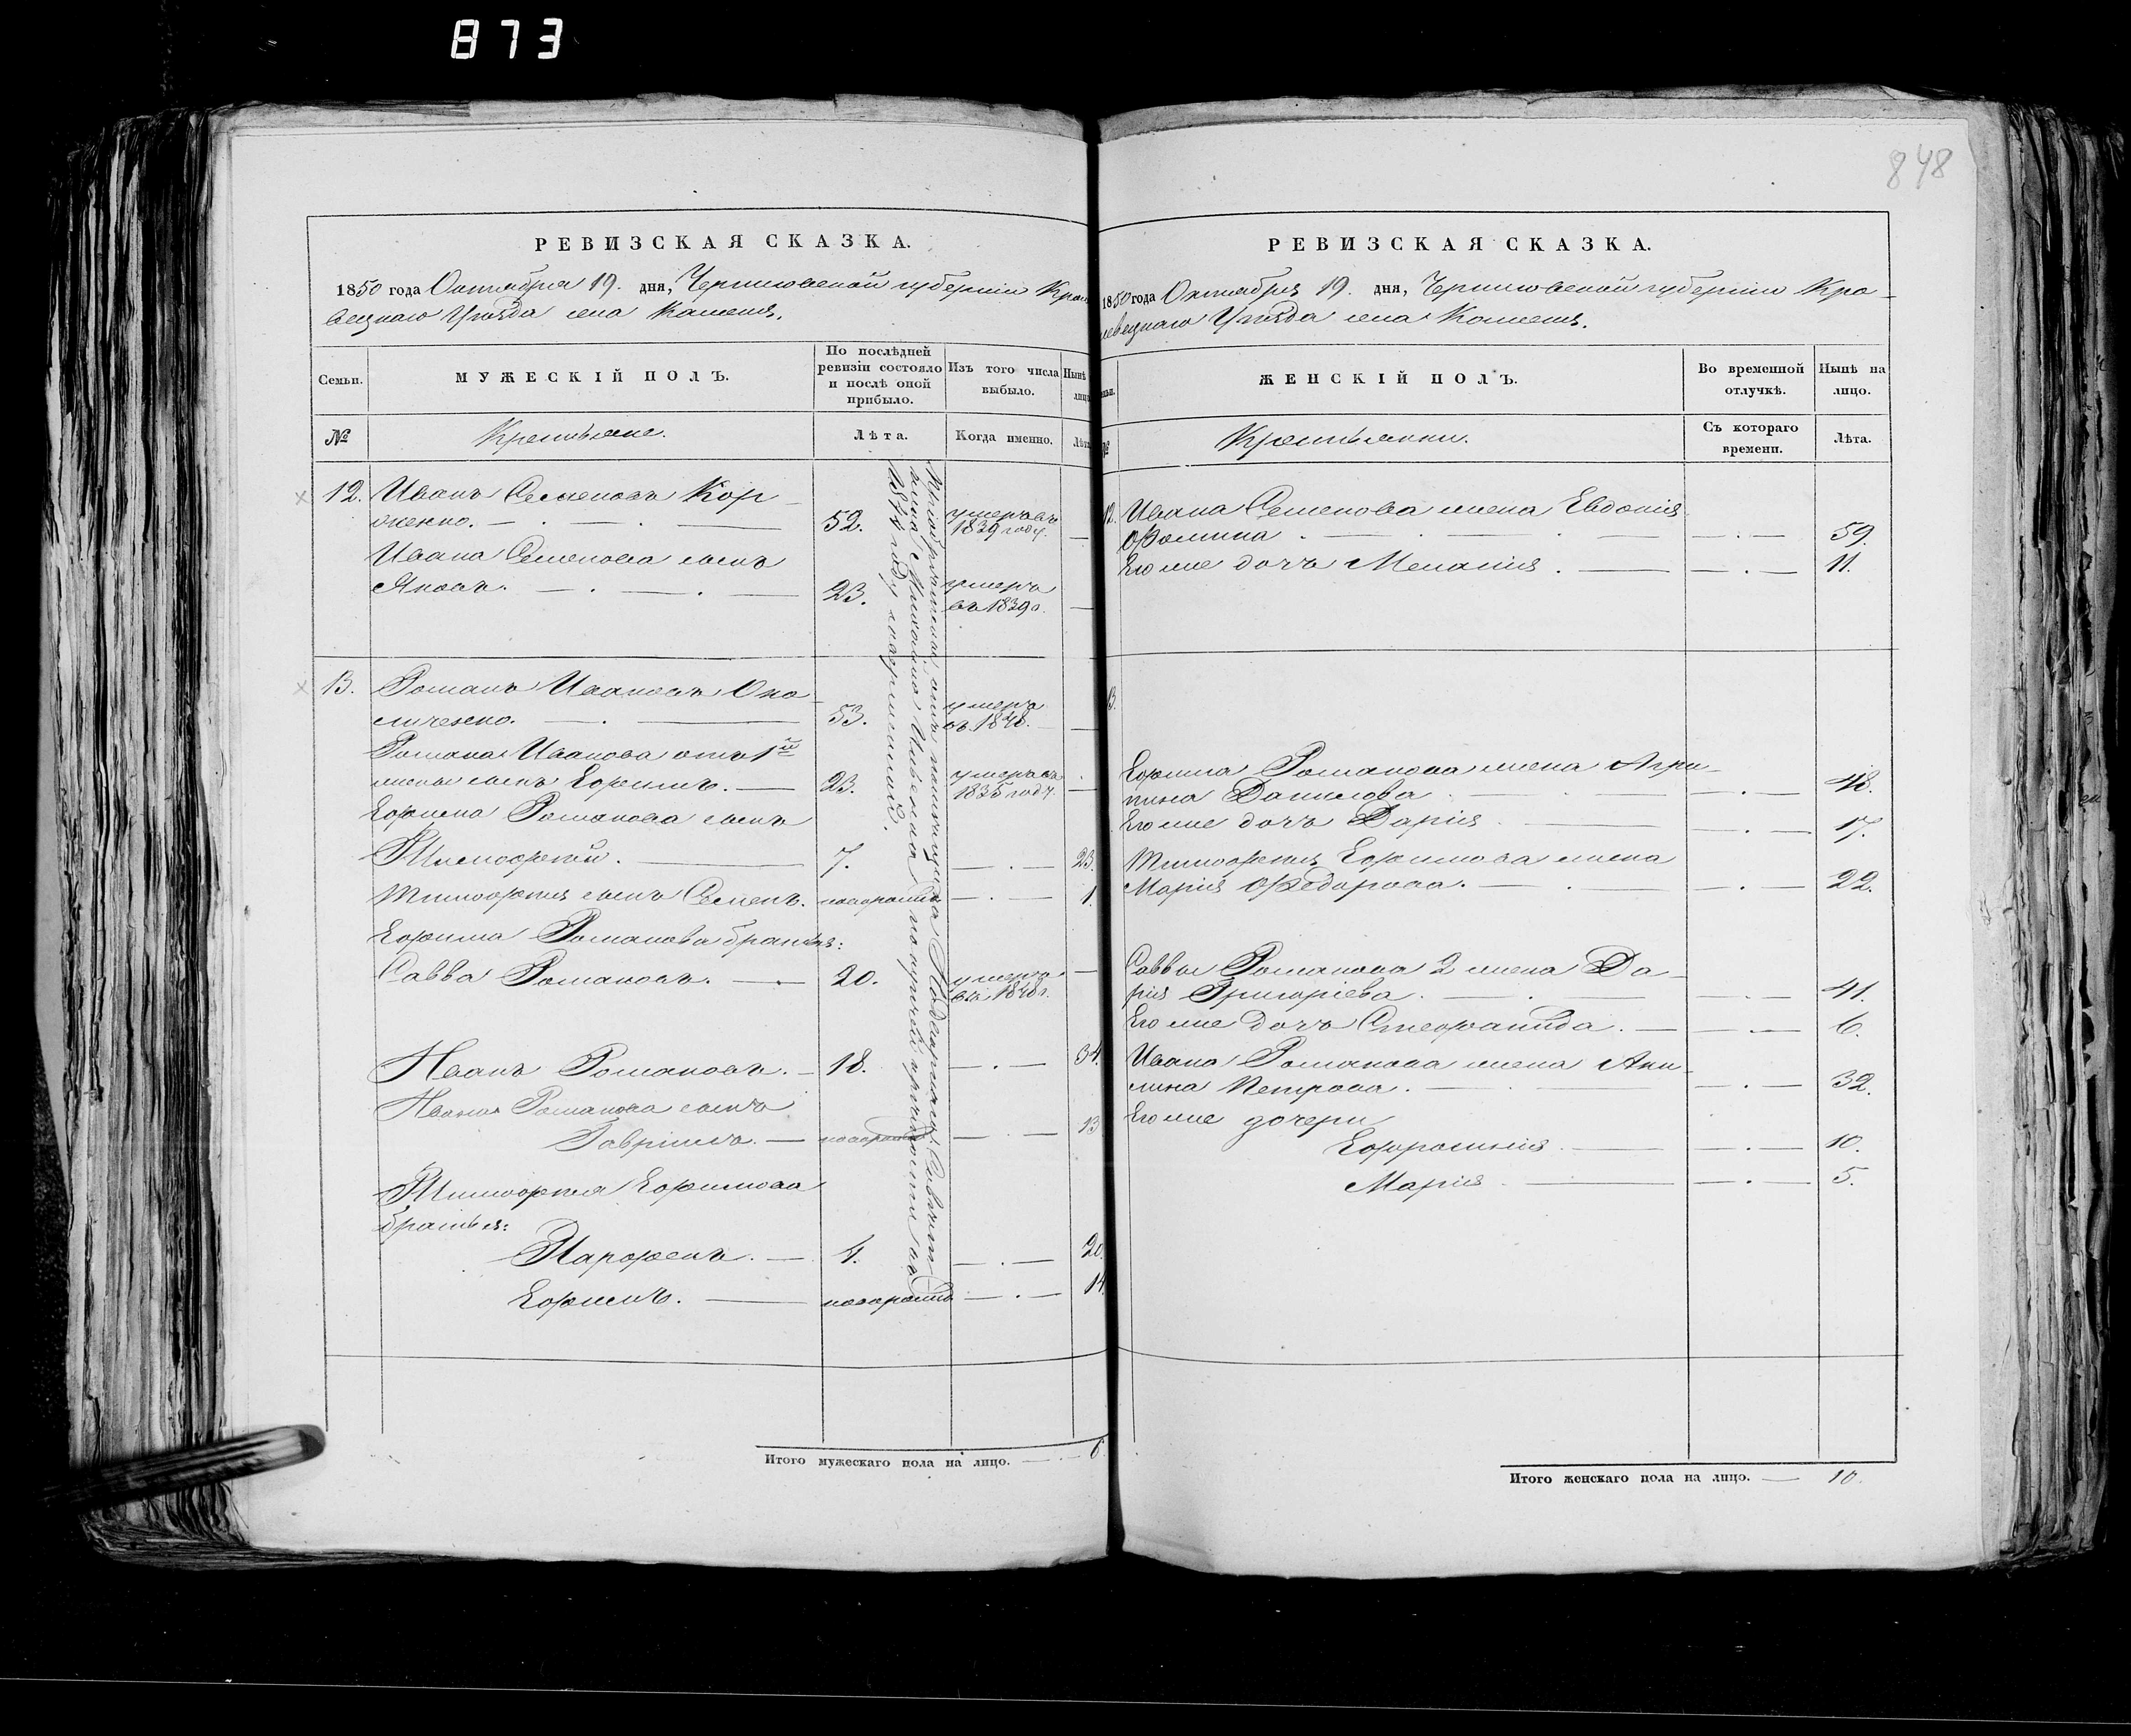 873
848
РЕВИЗСКАЯ СКАЗКА.
1850 года Октября 19. дня, Черниговской губернии Кроле
вецкаго Уѣзда села Каменя.
Семьи.
МУЖЕСКІЙ ПОЛЪ.
По послѣдней
ревизіи состояло
и послѣ оной
прибыло.
Изъ того числа
выбыло.
Нынѣ
лицо
№
Крестьяне.
Лѣта.
Когда именно.
Лѣта
12. Иванъ Семеновъ Кор
женко. 52. умеръ въ 1839 году.
Ивана Семенова сынъ
Яковъ. 23. умеръ въ 1839 г.
13. Романъ Ивановъ
53. умеръ въ 1848.
Романа Иванова отъ 1й
жены сынъ Ефимъ. 23. умеръ въ 1835 году.
Ефима Романова сынъ
Тимофей. 7. 23.
Тимофея сынъ Семенъ. новорожд 1.
Ефима Романова братья:
Савва Романовъ. 20. умеръ въ 1848 г.
Иванъ Романовъ. 18. 34.
Ивана Романова сынъ
Гавріилъ. новорожд 13
Тимофея Ефимова
братья:
Парфенъ. 4. 20.
Ефимъ. новорожд 14.
Итого мужескаго пола на лицо. 6
РЕВИЗСКАЯ СКАЗКА.
1850 года Октября 19. дня, Черниговской губерніи Кро-
левецкаго Уѣзда села Каменя.
ЖЕНСКІЙ ПОЛЪ.
Во временной
отлучкѣ.
Нынѣ на
лицо.
№
Крестьянки.
Съ котораго
времени.
Лѣта.
12. Ивана Семенова жена Евдокія
Фомина. 59.
Его же дочь Меланія. 11.
13.
Ефима Романова жена Агри-
пина Данилова. 48.
Его же дочь Дарія. 17.
Тимофея Ефимова жена
Марія Федорова. 22.
Саввы Романова 2 жена Да-
рія Григоріева. 41.
Его же дочь Стефанида. 6.
Ивана Романова жена Аки-
лина Петрова. 32.
Его же дочери
Ефросинія 10.
Марія 5.
Итого женскаго пола на лицо. 10